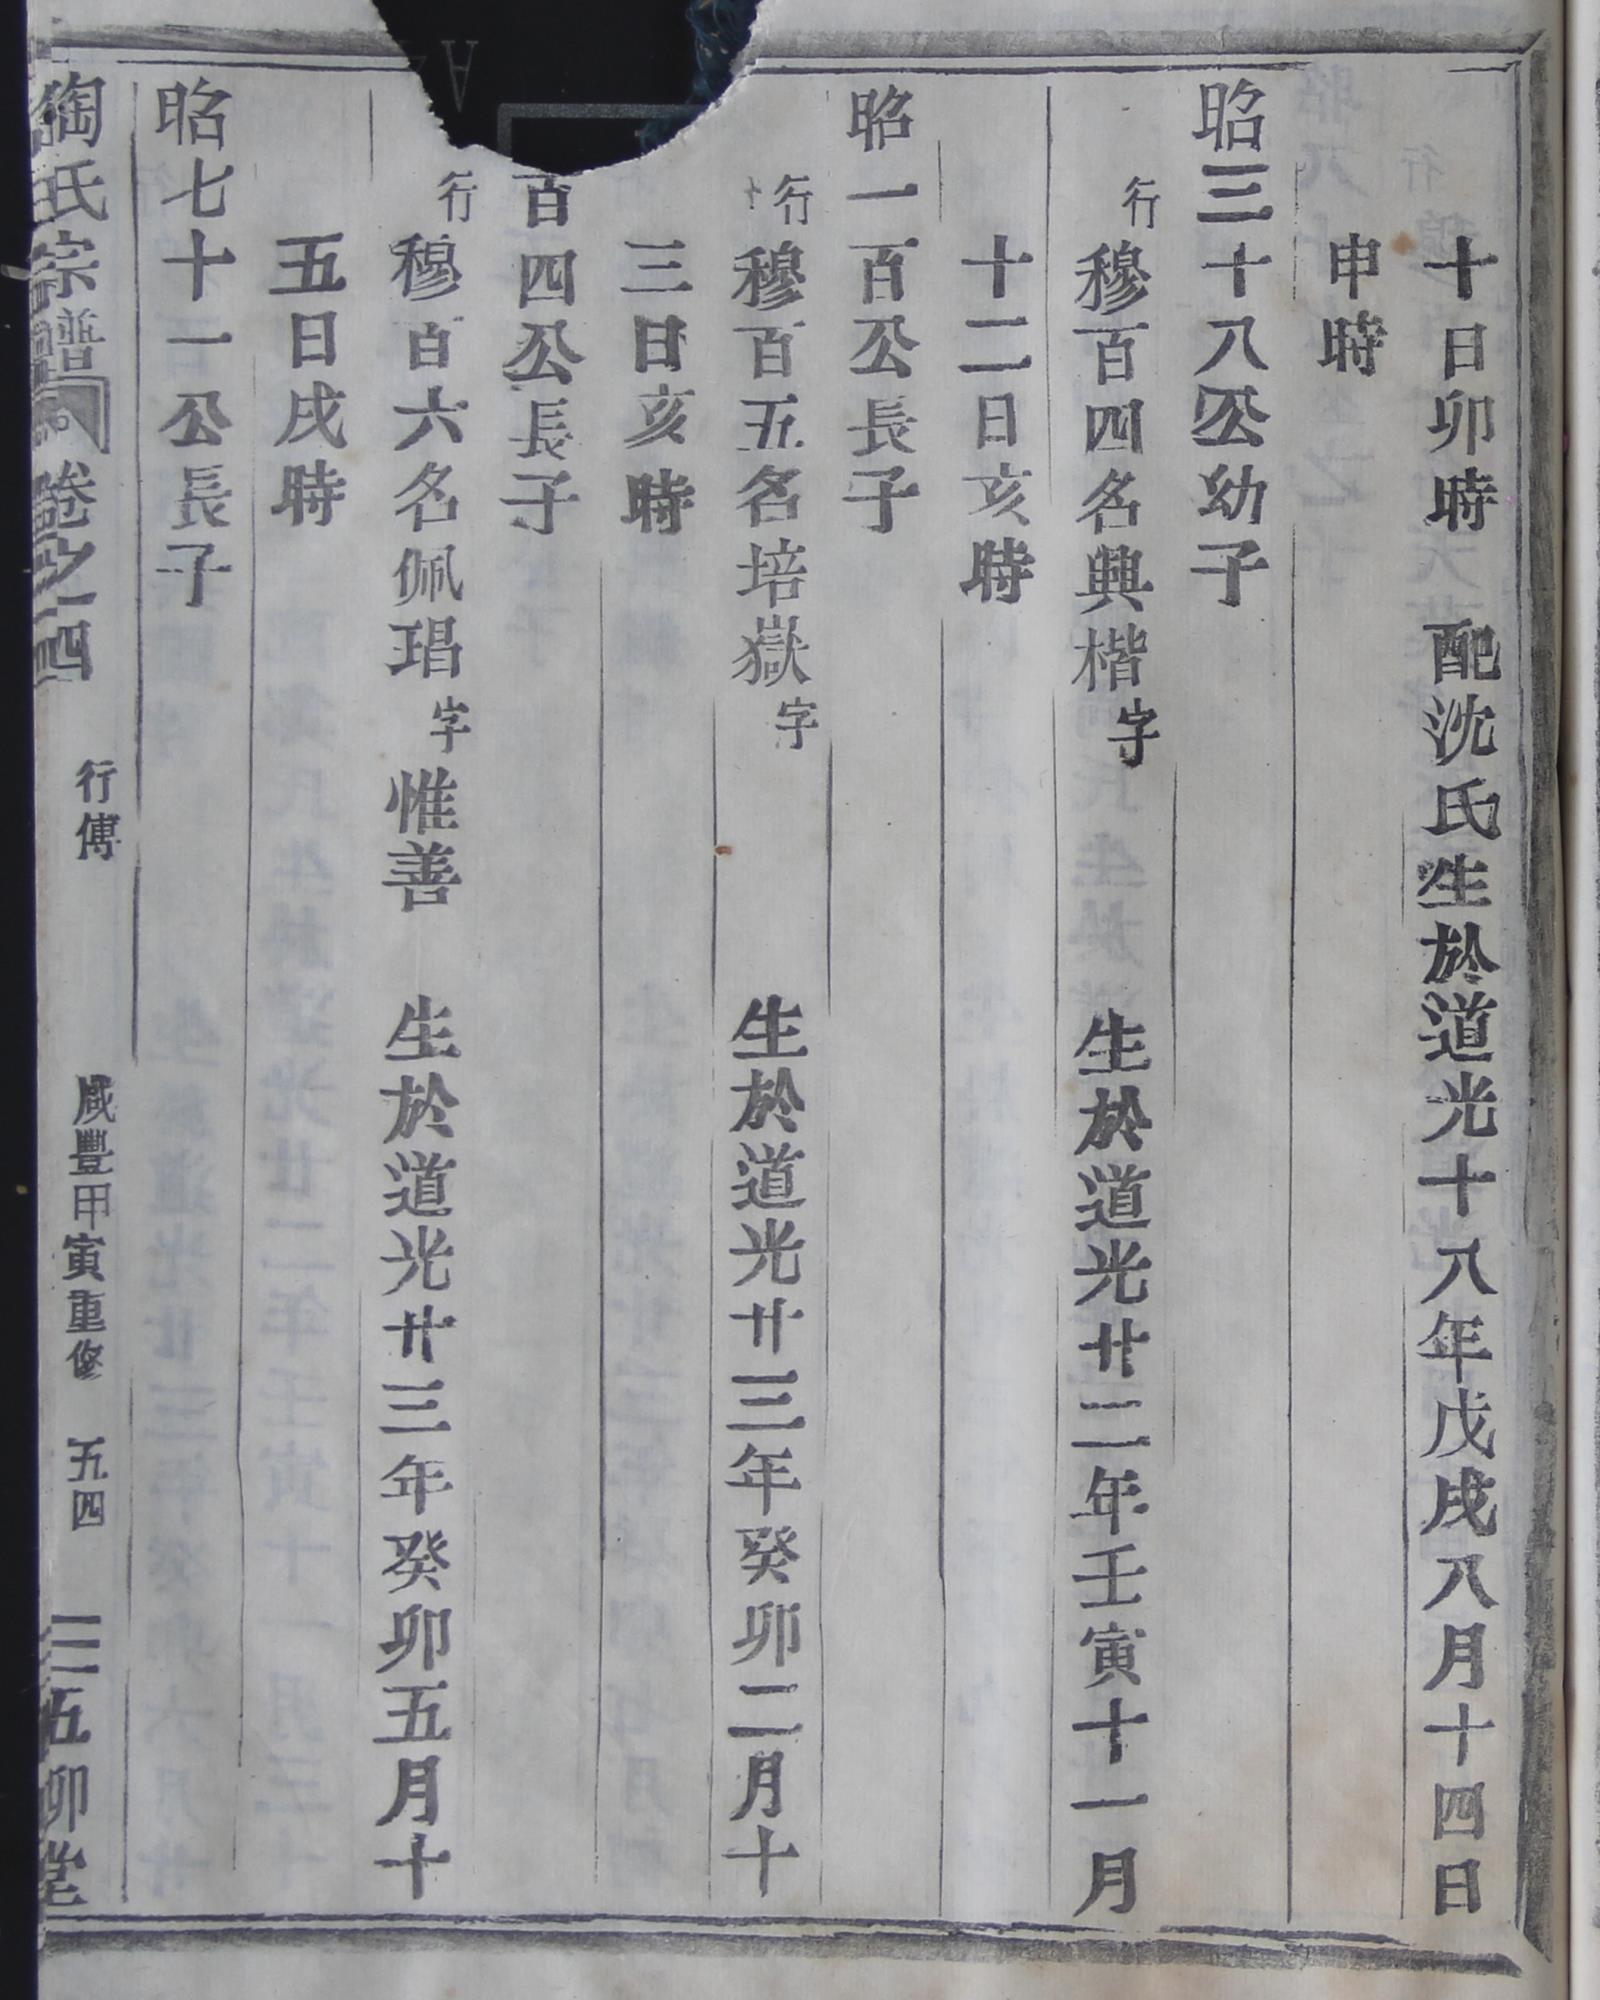 十日卯時　配沈氏生於道光十八年戊戌八月十四日
申時
昭三十八公幼子
行穆百四名興楷字　生於道光廿二年壬寅十一月
十二日亥時
昭一百公長子
行穆百五名培嶽字　生於道光廿三年癸卯二月十
三日亥時
百四公長子
行穆百六名佩琩字惟善　生於道光廿三年癸卯五月十
五日戌時
昭七十一公長子
陶氏宗譜　卷之四　行傳　咸豐甲寅重修　五四　五柳堂